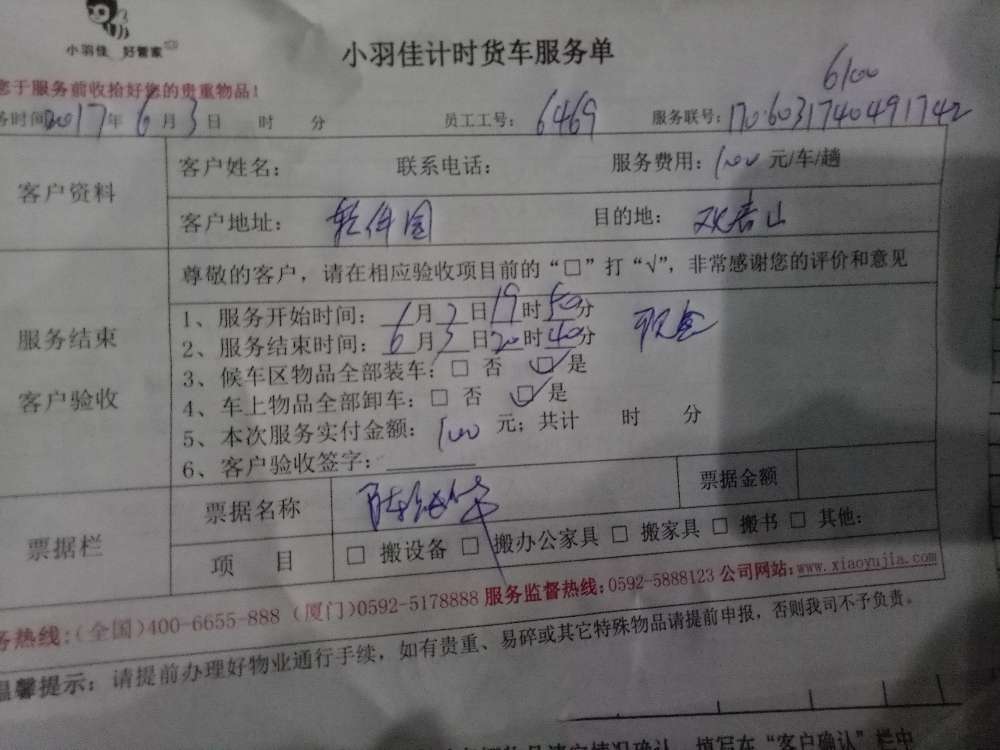 小羽佳 好管家
小羽佳计时货车服务单
您于服务前收拾好您的贵重物品!
6100
务时间2017年6月3日 时 分 员工工号: 6469 服务联号: 1706031740491742
客户资料
客户姓名: 联系电话: 服务费用: 100 元/车/趟
客户地址: 软件园 目的地:
服务结束
客户验收
尊敬的客户,请在相应验收项目前的“□”打“√”,非常感谢您的评价和意见
1、服务开始时间: 6月3日19时50分 现金
2、服务结束时间: 6月3日20时40分
3、候车区物品全部装车: □ 否 ☑ 是
4、车上物品全部卸车: □ 否 ☑ 是
5、本次服务实付金额: 100 元; 共计 时 分
6、客户验收签字:
票据栏
票据名称 票据金额
项 目 □ 搬设备 □ 搬办公家具 □ 搬家具 □ 搬书 □ 其他:
务热线:(全国)400-6655-888 (厦门)0592-5178888 服务监督热线:0592-5888123 公司网站:www.xiaoyujia.com
温馨提示: 请提前办理好物业通行手续,如有贵重、易碎或其它特殊物品请提前申报,否则我司不予负责。
填写在“客户确认”栏中